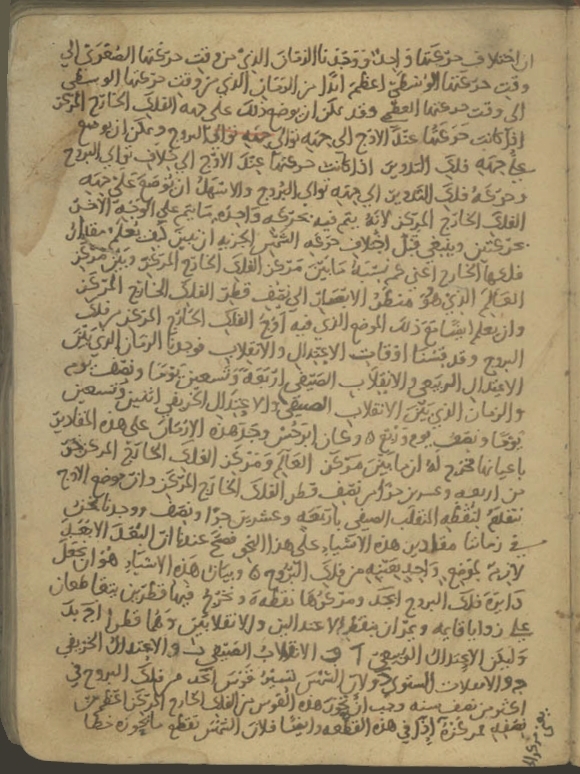 ان اختلاف حركتها واحد ووجدنا الزمان الذي من وقت حركتها الصغرى الى
وقت حركتها الوسطى اعظم ابدا من الزمان الذي من وقت حركتها الوسطى
الى وقت حركتها العظمى وقد يمكن ان يوضع ذلك على جهة الفلك الخارج المركز
اذا كانت حركتها عند الاوج الى جهة توالي البروج ويمكن ان يوضع
على جهة فلك التدوير اذا كانت حركتها عند الاوج الى خلاف توالي البروج
وحركة فلك التدوير الى جهة توالي البروج والاسهل ان يوضع على جهة
الفلك الخارج المركز لانه يتم فيه بحركة واحدة ما يتم على الوجه الاخر
بحركتين وينبغي قبل اختلاف حركة الشمس الجزئية ان نبين كيف نعلم مقدار
فلكها الخارج اعني كم نسبة ما بين مركز الفلك الخارج المركز وبين مركز
العالم الذي هو منظر الابصار الى نصف قطر الفلك الخارج المركز
وان يعلم ايضا مع ذلك الموضع الذي فيه اوج الفلك الخارج المركز من فلك
البروج وقد قسنا اوقات الاعتدال والانقلاب فوجدنا الزمان الذي بين
الاعتدال الربيعي والانقلاب الصيفي اربعة وتسعين يوما ونصف يوم
والزمان الذي بين الانقلاب الصيفي والاعتدال الخريفي اثنين وتسعين
يوما ونصف يوم وكان ابرخس وجد هذه الازمان على هذه المقادير
باعيانها فخرج له ان ما بين مركز العالم ومركز الفلك الخارج المركز جزء
من اربعة وعشرين جزءا من نصف قطر الفلك الخارج المركز وان موضع الاوج
يتقدم لنقطة المنقلب الصيفي باربعة وعشرين جزءا ونصف ووجدنا نحن
في زماننا مقادير هذه الاشياء على هذا النحو فصح عندنا ان البعد الابعد
لازم لموضع واحد بعينه من فلك البروج وبيان هذه الاشياء هو ان نجعل
دائرة فلك البروج ابجد ومركزها نقطة ه ونخرج فيها قطرين يتقاطعان
على زوايا قائمة ويمران بنقطتي الاعتدالين والانقلابين وهما قطرا اج بد
وليكن الاعتدال الربيعي ا والانقلاب الصيفي ب والاعتدال الخريفي
ج والانقلاب الشتوي د ولان الشمس تسير قوس ابج من فلك البروج في
اكثر من نصف سنة وجب ان تكون هذه القوس من الفلك الخارج المركز اعظم من
نصفه فمركزه اذا في هذه القطعة وايضا فلان الشمس تقطع ما تحوزه خطا